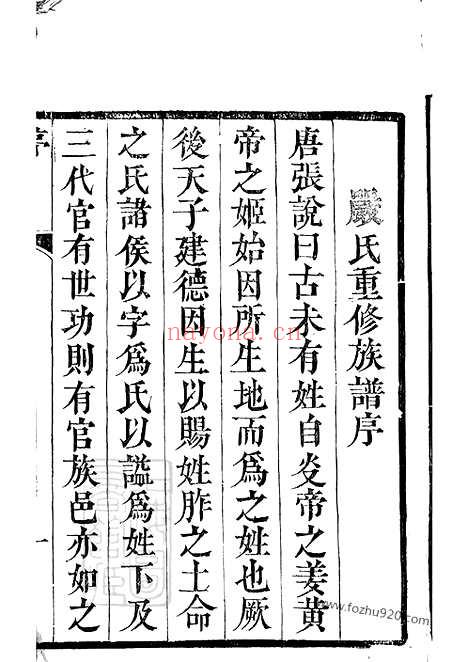 嚴氏重修族譜序
唐張說曰古未有姓自炎帝之姜黃
帝之姬始因所生地而為之姓也厥
後天子建德因生以賜姓胙之土命
之氏諸侯以字為氏以謚為姓下及
三代官有世功則有官族邑亦如之
序
一
nayona.cn
www.fozhu920.com